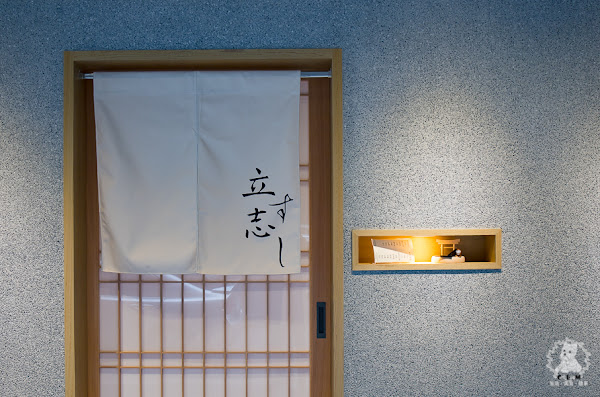 立志
すし